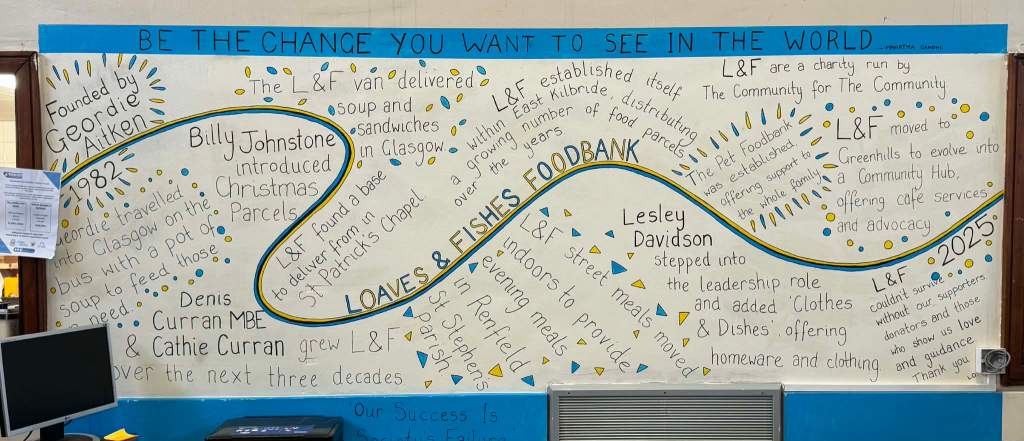 BE THE CHANGE YOU WANT TO SEE IN THE WORLD
Founded by
Geordie
Aitken
1982
Geordie travelled
into Glasgow on the
bus with a pot of
soup to feed those
in need.
The L&F van delivered
soup and
sandwiches
in Glasgow.
Billy Johnstone
introduced
Christmas
Parcels
Denis
Curran MBE
& Cathie Curran grew L&F
over the next three decades
L&F found a base
to deliver from in
St Patrick's Chapel
LOAVES & FISHES FOODBANK
L&F established itself
within East Kilbride, distributing
a growing number of food parcels
over the years
L&F street meals moved
indoors to provide
evening meals
in Renfield
St Stephens
parish
L&F are a charity run by
The Community for The Community
The Pet Foodbank
was established
offering support to
the whole family
Lesley
Davidson
stepped into
the leadership role
and added 'Clothes
& Dishes' offering
homeware and clothing
L&F moved to
Greenhills to evolve into
a Community Hub,
offering cafe services
and advocacy
2025
L&F
couldn't survive
without our supporters
donators and those
who show us love
and guidance
Thank you
Our Success Is
Society's Failure